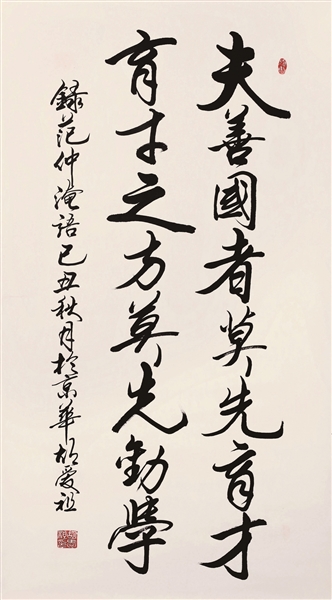 夫善國者莫先育才
育才之方莫先勸學
錄范仲淹語己丑秋月於京華胡愛祖